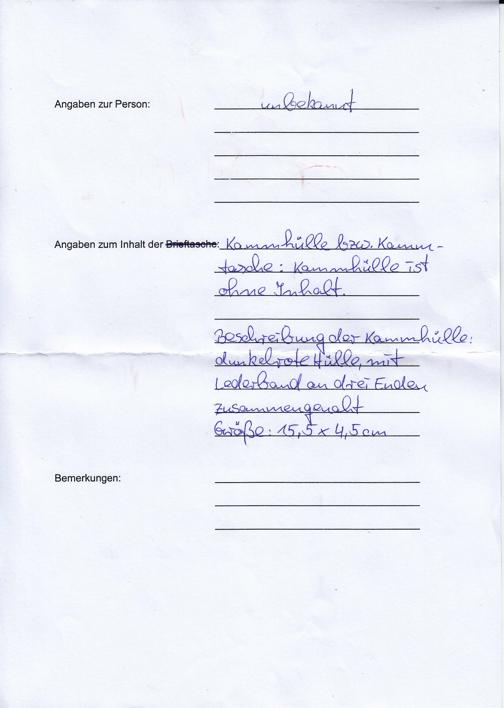 Angaben zur Person: unbekannt
Angaben zum Inhalt der Brieftasche: Kammhülle bzw. Kamm-
tasche: Kammhülle ist
ohne Inhalt.
Beschreibung der Kammhülle:
dunkelrote Hülle, mit
Lederband an drei Enden
zusammengenäht
Größe: 15,5 x 4,5 cm
Bemerkungen: